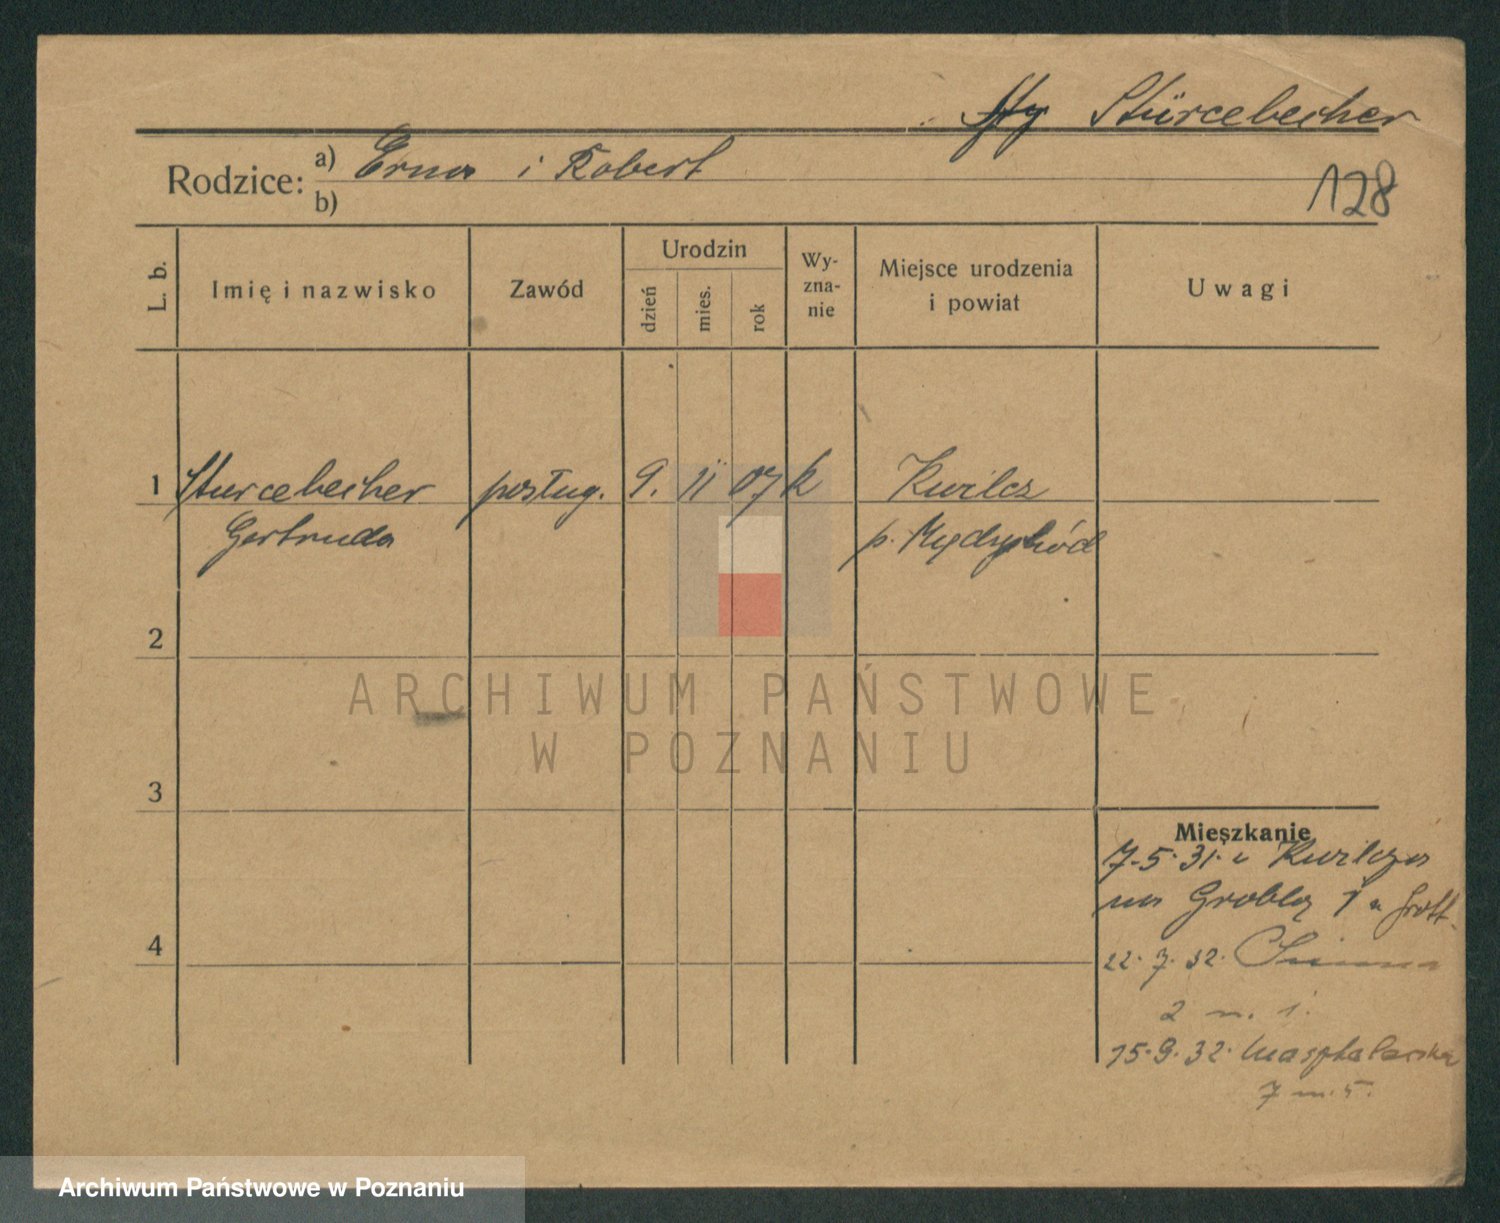 Stürcebecher
Rodzice: a) Erna i Robert
b)
128
L. b.
Imię i nazwisko
Zawód
Urodzin
dzień
mies.
rok
Wy-
zna-
nie
Miejsce urodzenia
i powiat
Uwagi
1 Sturcebecher posług. 9. 11 07 k Kwilcz
Gertruda p. Międzychód
2
ARCHIWUM PAŃSTWOWE
W POZNANIU
3
Mieszkanie
7.5.31. z Kwilcza
na Groblą 1 u
4
22.7.32.
2 m. 1.
15.9.32. Masztalarska
7 m. 5.
Archiwum Państwowe w Poznaniu